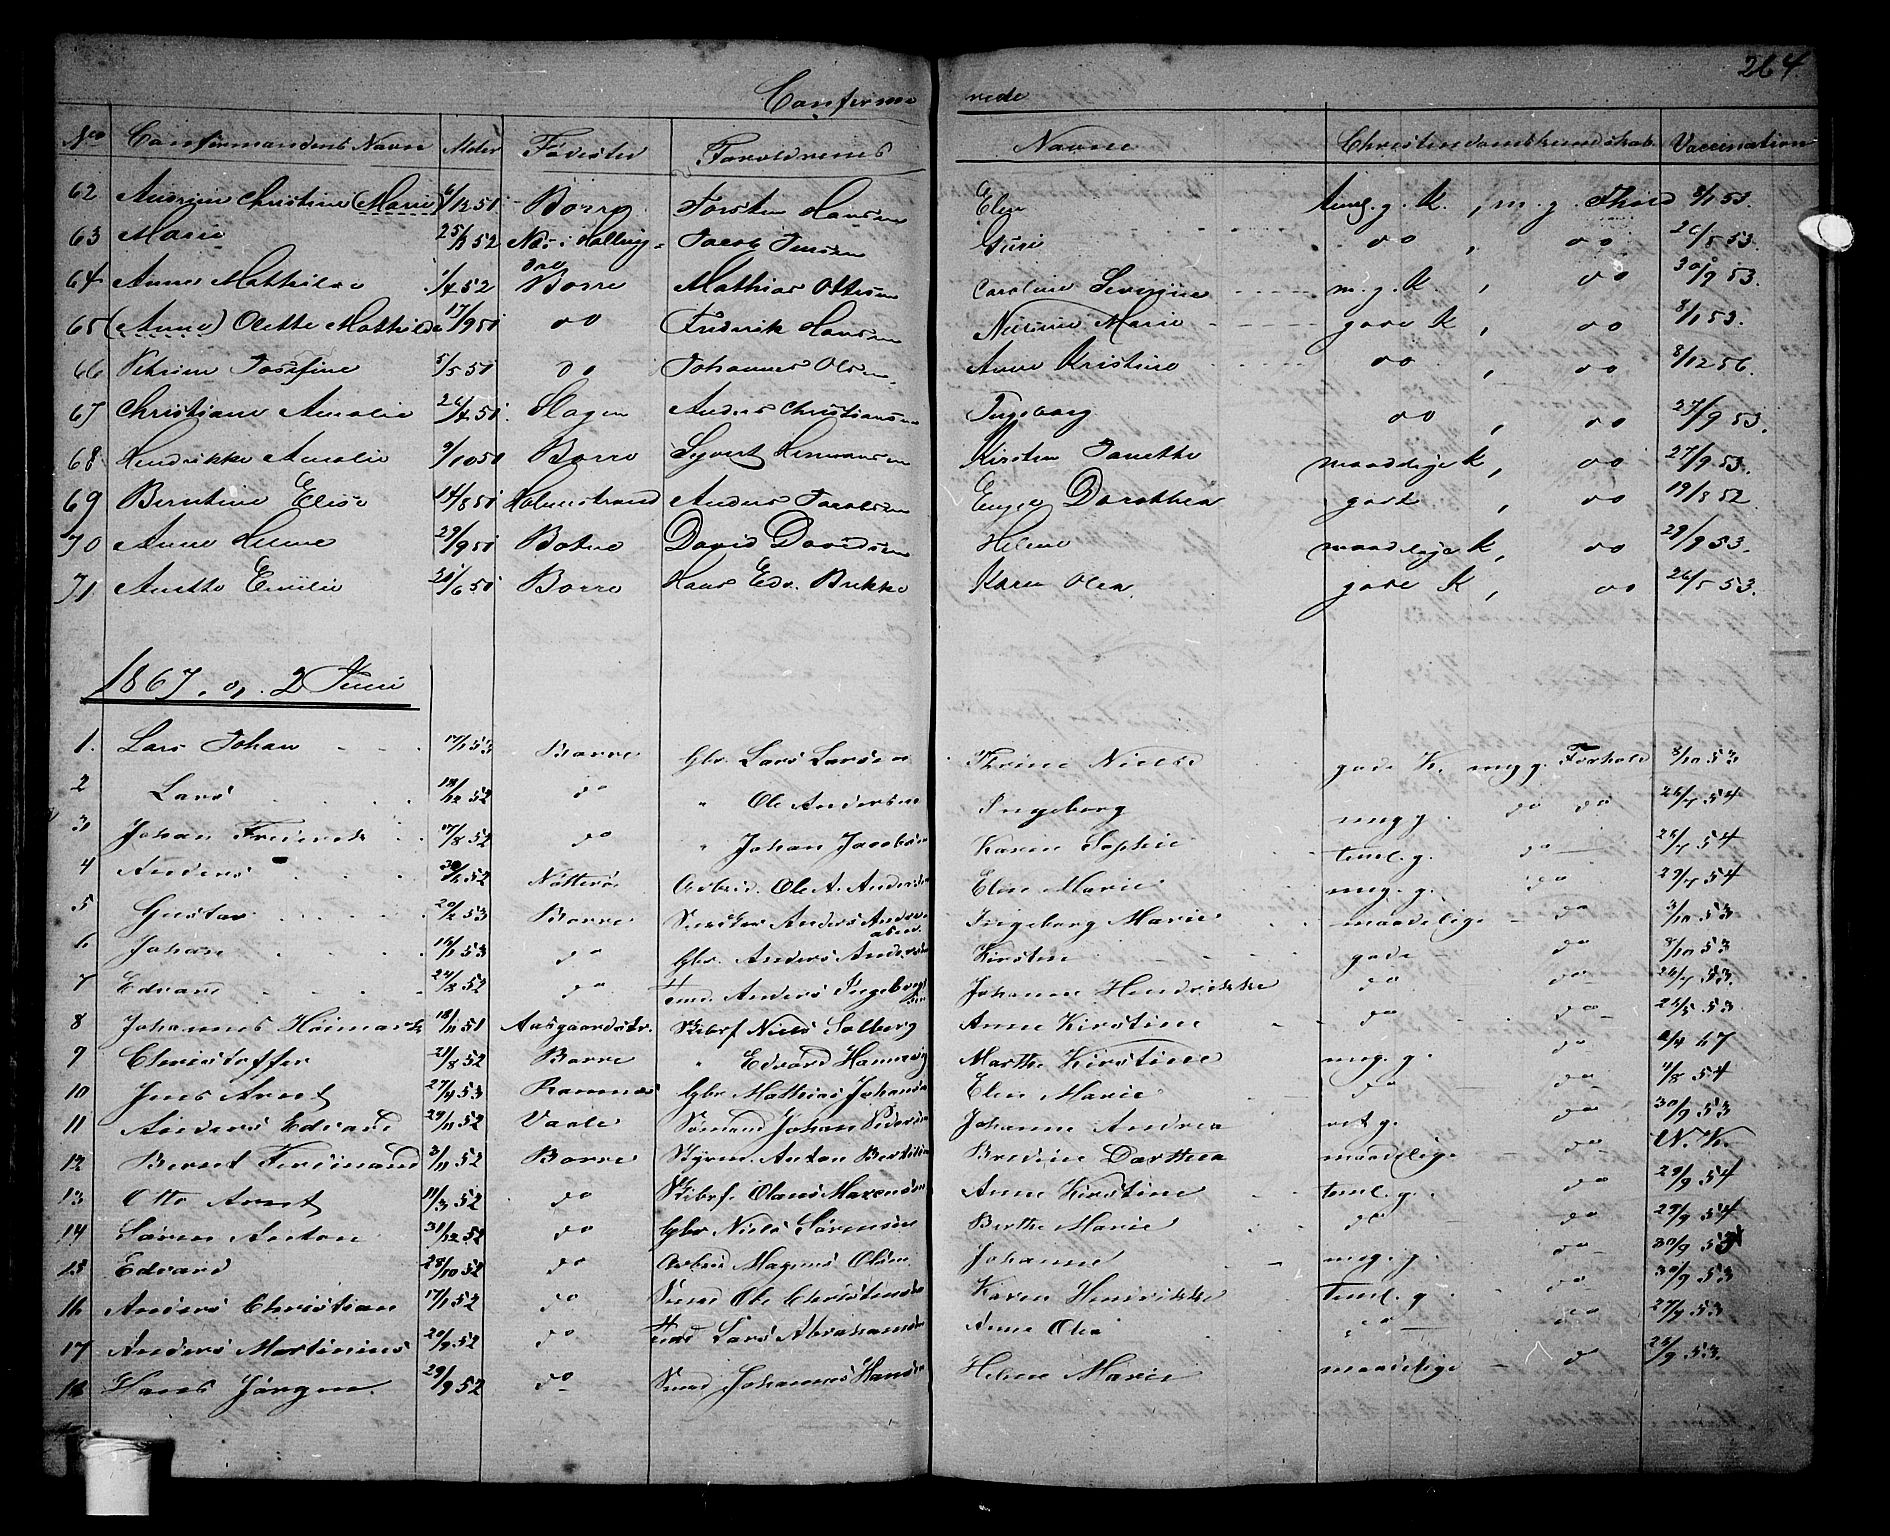 264
Confirme rede
No Confirmandens Navn Alder Fødested Forældrenes Navne Christendomskundskab Vaccination
62 Andrine Christine (Marie) 6/12 51 Borre Torsten Hansen Elen teml. g. K., m. g. Fhold 8/1 53.
63 Marie 25/3 52 Næs i Hallingdal Jacob Jensen Guri do, do 26/5 53.
64 Anne Mathilde 1/4 52 Borre Mathias Ottesen Caroline Severine m. g. K, do 30/9 53.
65 (Anne) Olette Mathilde 17/9 51 do Fredrik Hansen Nicoline Marie gode K, do 8/1 53.
66 Petrine Josefine 5/5 51 do Johannes Olsen Anne Kristine do, do 8/12 56.
67 Christiane Amalie 26/4 51. Slagen Anders Christiansen Ingeborg do, do 27/9 53.
68 Hendrikke Amalie 9/10 51 Borre Syvert Hermansen Kirsten Janette maadelige K, do 27/9 53.
69 Berntine Elise 14/8 51 Holmestrand Anders Jacobsen Engel Dorothea gode, do 19/8 52
70 Anne Helene 29/9 51 Botne David Davidsen Helene maadelige K, do 29/9 53.
71 Anette Emilie 21/6 51 Borre Hans Edv. Brekke Karen Olea gode K, do 26/5 53.
1867, d. 2 Juni
1. Lars Johan 17/1 53 Borre Gbr. Lars Larsen Thrine Nielsd gode K. meg g. Forhold 3/10 53
2 Lars 18/12 52 do " Ole Andersen Ingeborg meg g. do do 26/4 54
3 Johan Frederik 17/8 52 do " Johan Jacobsen Karen Sophie teml. g. do 26/4 54
4 Anders 30/1 52 Nøtterø Arbeid. Ole A. Andersen Elen Marie meg. g. do 29/4 54
5 Gustav 20/2 53 Borre Anders Andersen Ingeborg Marie maadelige do 3/10 53
6 Johan 18/1 53 do Gbr. Anders Andersen Kirstine gode do 8/10 53
7 Edvard 24/8 52 do Anders Ingebregtsen Johanne Hendrikke do do 26/4 53.
8 Johannes Høimark 18/11 51 Aasgaardstr. Skibrf Niels Solberg Anne Kirstine do do 26/5 53
9 Christoffer 21/8 52 Borre " Edvard Hannevig Marthe Kirstine meg. g. do 67
10 Jens Arnt 27/4 53 Ramnæs Gbr Mathias Johansen Elen Marie do do 11/8 54
11 Anders Edvard 29/11 52 Vaale Sømand Johan Pedersen Johanne Andrea ret g. do 30/9 53
12 Bernt Ferdinand 3/11 52 Borre Styrm. Anton Berntsen Bredine Dorthea maadelige do N. K.
13 Otto Arnt 11/3 52 do Skibrf. Olaus Maxensen Anne Kirstine teml. g. do 29/9 54
14 Søren Anton 31/12 52 do Gbr Niels Sørensen Berthe Marie do do 29/9 54
15 Edvard 28/10 52 do Arbeid Magnus Olsen Johanne meg. g. do 30/9 53
16 Anders Christian 17/1 52 do Ole Christensen Karen Henrikke Teml. g. do 30/9 53
17 Anders Martinius 20/9 52 do Lars Abrahamsen Anne Olea do do 27/9 53
18 Hans Jørgen 29/9 52 do Johannes Hansen Helene Marie maadelige do 26/9 53.